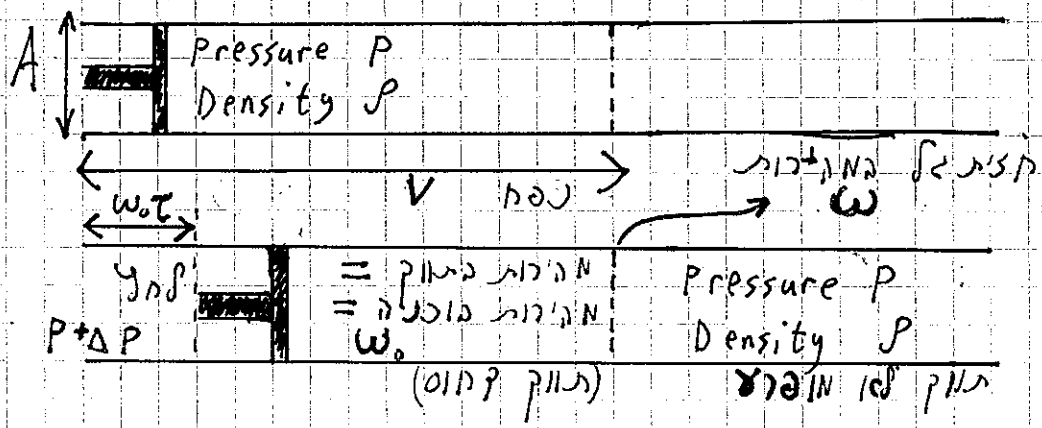 A
Pressure P
Density ρ
V נפח
חזית גל במהירות
ω
ω₀τ
לחץ
P+ΔP
מהירות בתווך =
מהירות בוכנה =
ω₀
(תווך דחוס)
Pressure P
Density ρ
תווך לא מופרע